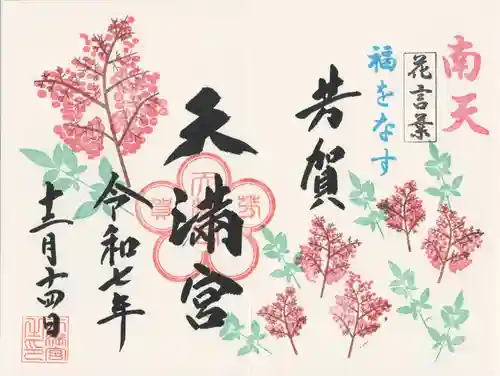 南天
花言葉
福をなす
芳賀
天満宮
令和七年
十二月十四日